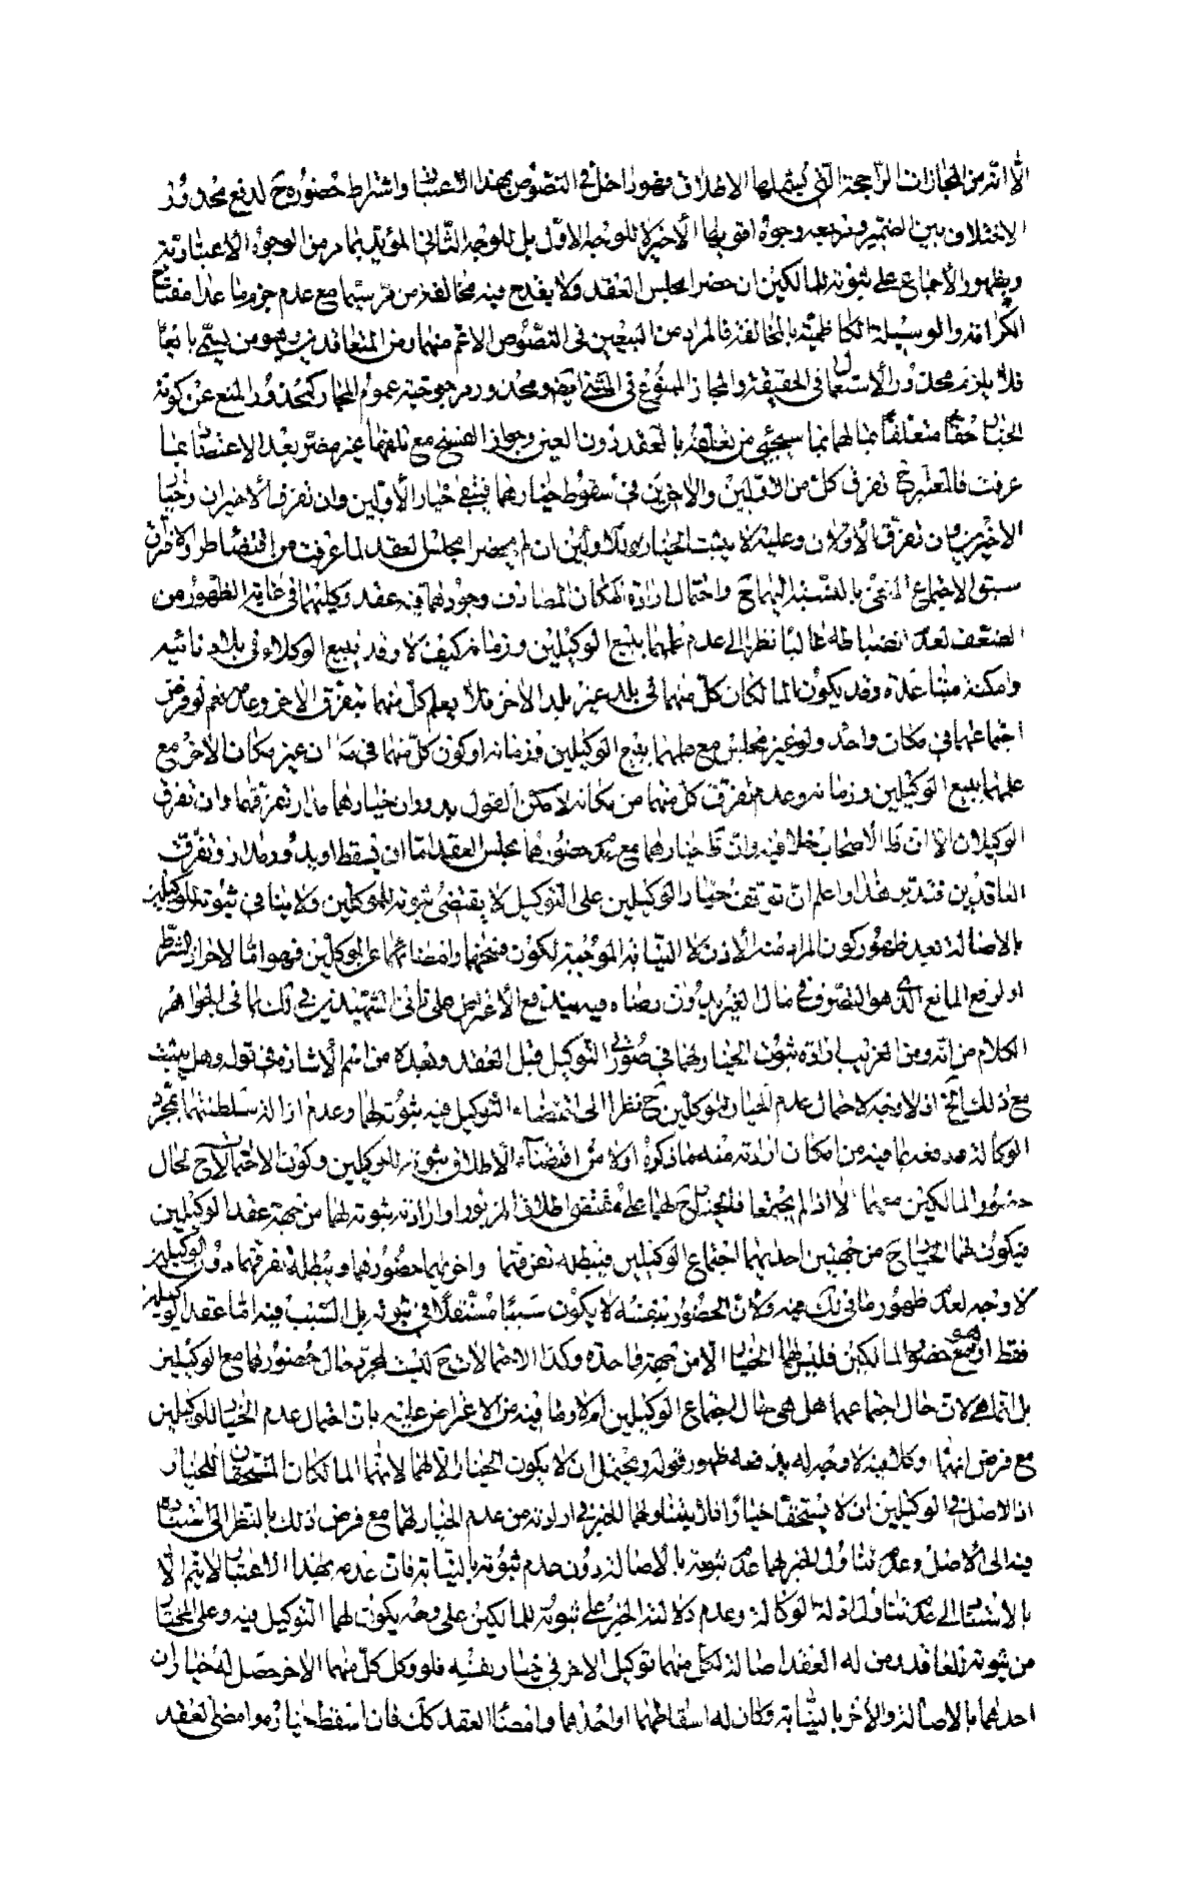 الّا انّه من المجازات الراجحة الّتى يشملها الاطلاق فهو داخل فى النصوص بهذا الاعتبار واشتراط حضوره ح لدفع محذور
الاختلاف بين الضمير ومرجعه وجوه اقويها الأخير لا للوجه الاوّل بل للوجه الثّانى المؤيّد بما مر من الوجوه الاعتباريّة
وبظهور الأجماع على ثبوته للمالكين ان حضرا مجلس العقد ولا يقدح فيه مخالفة من مر سيّما مع عدم جزم ما عدا مفتاح
الكرامة والوسيلة الكاظميّة بالمخالفة فالمراد من البيعين فى النّصوص الاعم منهما ومن المتعاقدين وهو من يسمّى بايعًا
فلا يلزم محذور الأستعمال فى الحقيقة والمجاز الممنوع فى المثنّى ايضو محذور مرجوحيّة عموم المجاز كمحذور المنع عن كونه
الخيار حقا متعلقًا بمالهما بما سيجئ من تعلّقه بالعقد دون العين وجواز الفسخ مع تلفهما غير مضرّ بعد الاعتضاد بما
عرفت فالمعتبر ح تفرق كلّ من الاوّلين والاخرين فى سقوط خيارهما فيبقى خيار الأوّلين وان تفرق الأخيران وخيار
الاخيرين وان تفرّق الأوّلان وعليه لا يثبت الخيار للاوّلين ان لم يحضرا مجلس العقد لما عرفت من اقتضاء طرو الافتراق
سبق الاجتماع المنفى بالنّسبة اليهما ح واحتمال ارادة المكان المصادف وجودهما فيه عقد وكيلهما فى غاية الظّهور من
الضعف لعدم انضباطه غالبًا نظرا الى عدم علمهما ببيع الوكيلين وزمانه كيف لا وقد يبيع الوكلاء فى بلاد نائية
وامكنة متباعدة وقد يكون المالكان كلّ منهما فى بلد غير بلد الاخر فلا يعلم كل منهما بتفرق الاخر وعدمه نعم لو فرض
اجتماعهما فى مكان واحد ولو غير مجلس مع علمهما ببيع الوكيلين وزمانه او كون كلّ منهما فى مكان غير مكان الاخر مع
علمهما ببيع الوكيلين وزمانه وعدم تفرق كلّ منهما من مكانه لامكن القول بدوران خيارهما مدار تفرّقهما وان تفرق
الوكيلان الا ان ظ الأصحاب خلافه وان ظ خيارهما مع عدم حضورهما مجلس العقد امّا ان يسقط او يدور مدار تفرّق
العاقدين فتدبّر هذا واعلم انّ توقف خيار الوكيلين على التوكيل لا يقتضى ثبوته للموكلين ولا ينافى ثبوته للوكيلين
بالاصالة بعد ظهور كون المراد منه الأذن لا النيّابة الموجبة لكون فسخهما وامضائهما عن الموكلين فهو امّا لاحراز الشّرط
او لرفع المانع الّذى هو التصرّف فى مال الغير بدون رضاه فيه فيندفع الأعتراض على ثانى الشّهيدين فى ذلك بما فى الجواهر
الكلام من انّه ومن الغريب ارادة ثبوت الخيار لهما فى صورتى التوكيل قبل العقد وبعده من اسم الأشارة فى قوله وهل يثبت
مع ذلك الخ اذ لا وجه لاحتمال عدم الخيار للموكلين ح نظرا الى اقتضاء التوكيل فيه ثبوته لهما وعدم ازالة سلطنتهما بمجرّد
الوكالة مدفعه بما فيه من امكان ارادته منه مما ذكره اولا من اقتضاء الأطلاق ثبوته للوكيلين وكون الاحتمالان ح لحال
حضور المالكين معهما لا اذا لم يجتمعا فالخيار ح لهما على مقتضى اطلاق المزبور او ارادته ثبوته لهما من جهة عقد الوكيلين
فيكون لهما الخيار ح من جهتين احديهما اجتماع الوكيلين فيبطله تفرقهما واخريهما حضورهما ويبطله تفرقهما دون الوكيلين
لا وجه لعدم ظهور ما فى لك فيه ولانّ الحضور بنفسه لا يكون سببًا مستقلّا فى ثبوته بل السّبب فيه امّا عقد الوكيلين
فقط او هو مع حضور المالكين فليس لهما الخيار الّا من جهة واحدة وكذا الاحتمالات ح ليست لمجرّد حال حضورهما مع الوكيلين
مع فرض انهما وكلا فيه لا وجه له يدفعه ظهور قوله ويحتمل ان لا يكون الخيار الّا لهما لانّهما المالكان المستحقّان للخيار
اذ الاصل فى الوكيلين ان لا يستحقّا خيارًا فلا يتناولهما الخبر فى ارادته من عدم الخيار لهما مع فرض ذلك بالنّظر الى استناده
فيه الى الأصل وعدم تناول الخبر لهما عدم ثبوته بالأصالة دون عدم ثبوته بالنّيابة فان عدمه بهذا الاعتبار لا يتم الّا
بالاستناد الى عدم تناول ادلة الوكالة وعدم دلالة الخبر على ثبوته للمالكين على وجه يكون لهما التوكيل فيه وعلى المختار
من ثبوته للعاقد ومن له العقد اصالة لكلّ منهما توكيل الاخر فى خيار نفسه فلو وكل كلّ منهما الاخر حصل له خياران
احدهما بالاصالة والأخر بالنّيابة وكان له اسقاطهما او احدهما وامضاء العقد كك فان اسقط خياره وامضى العقد